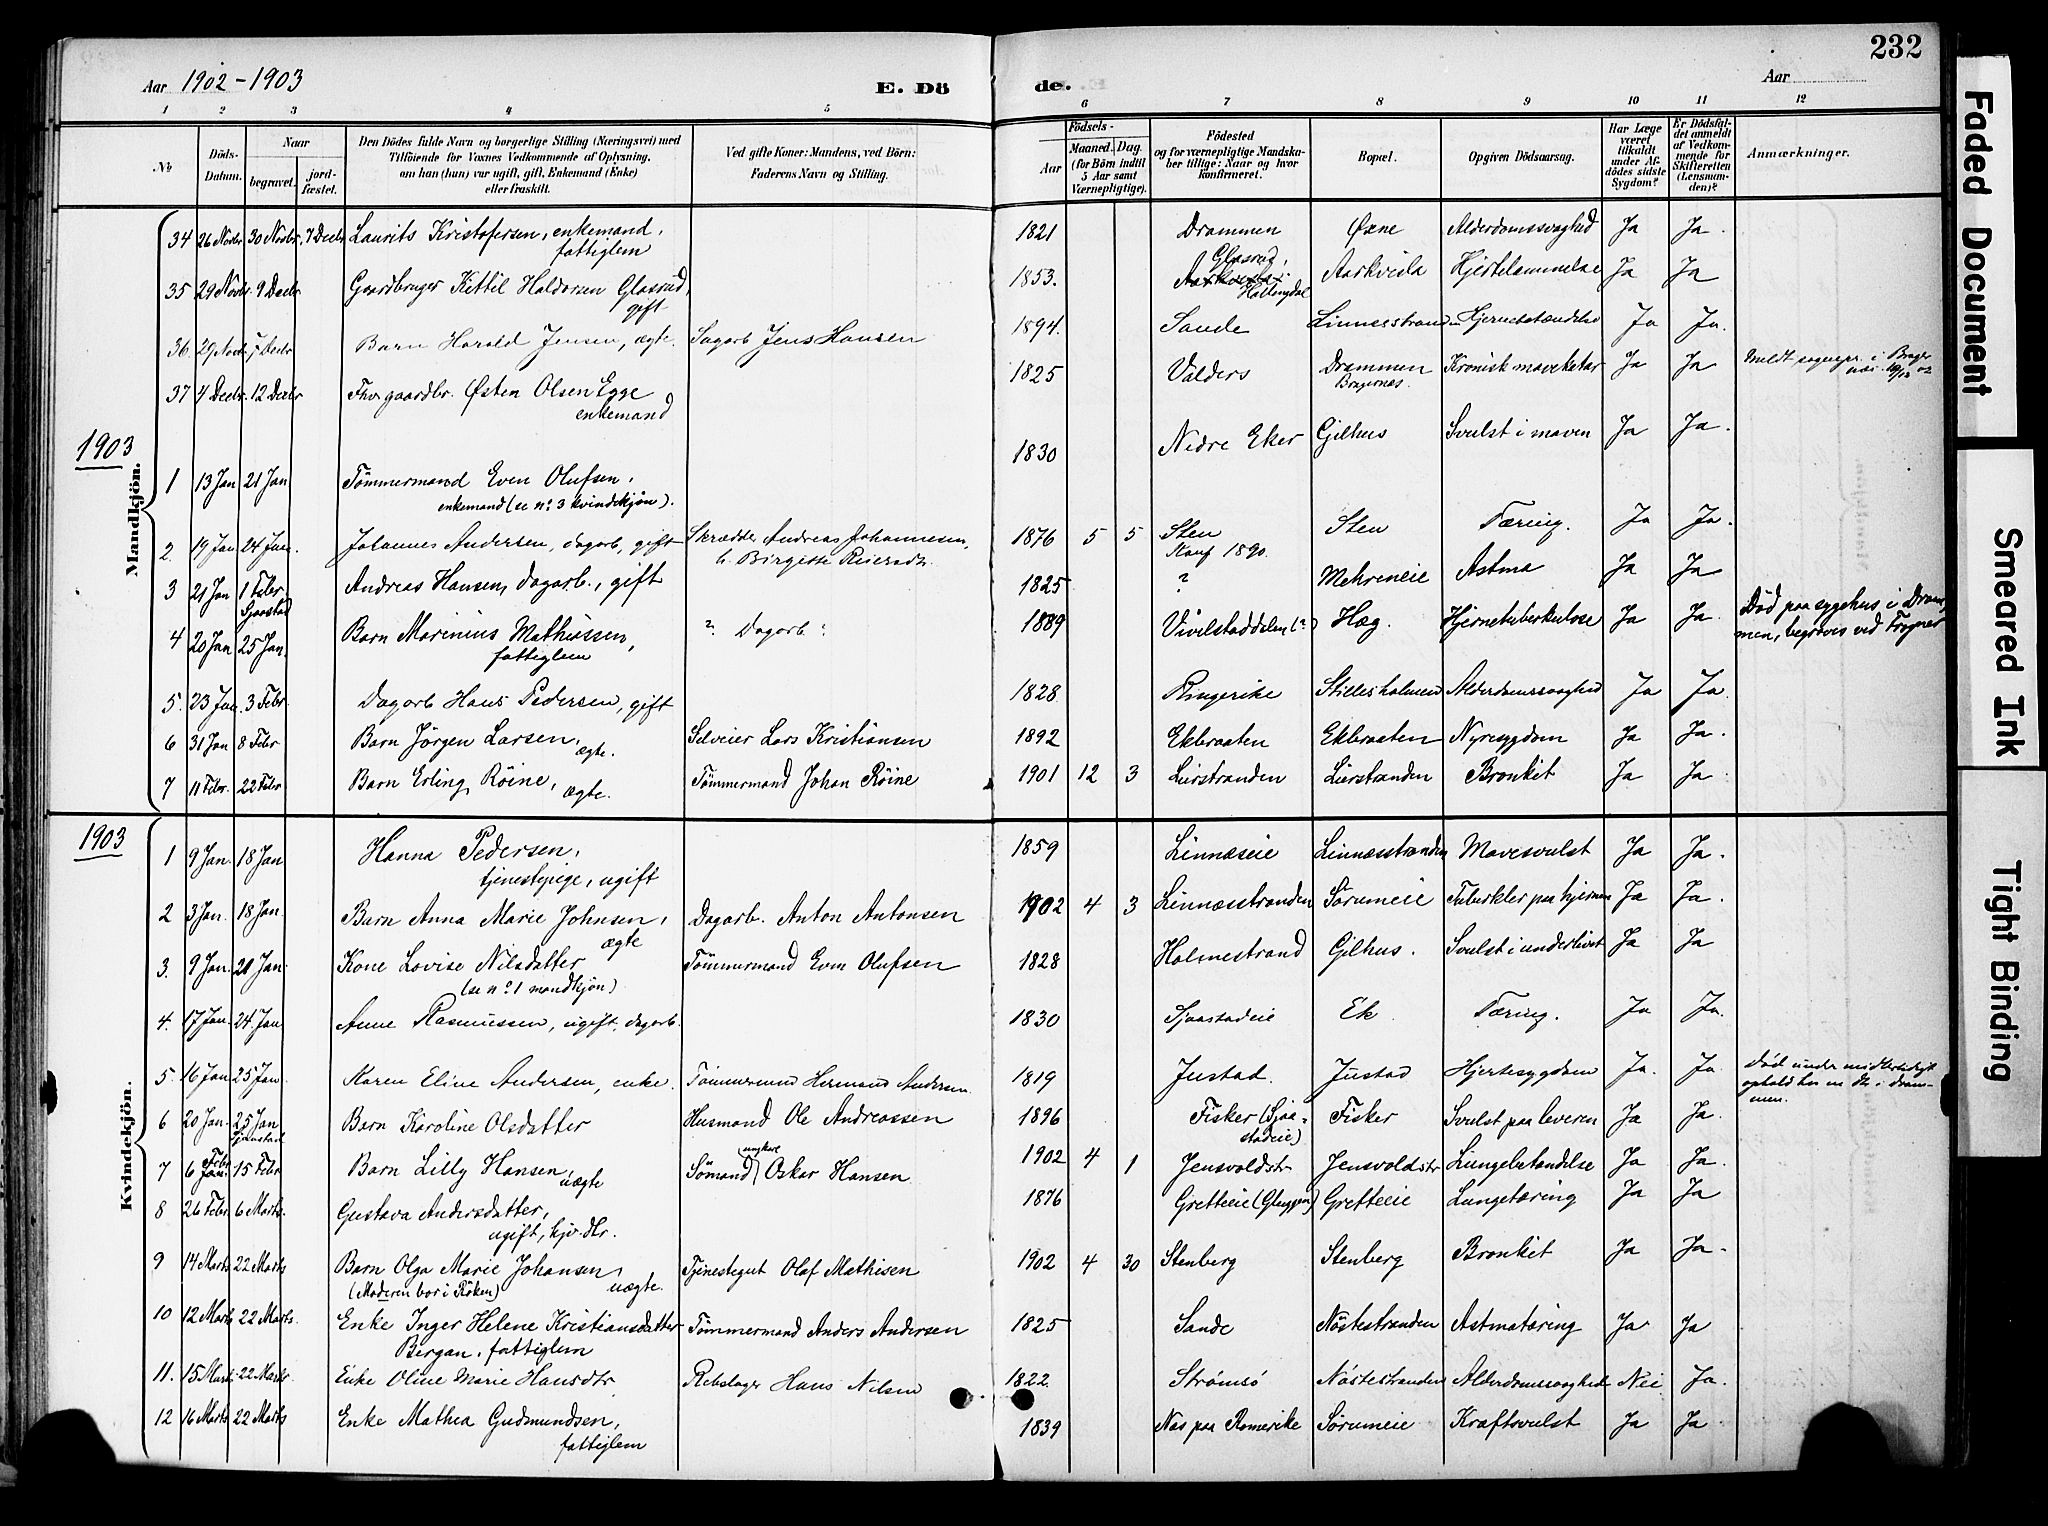 Aar 1902-1903
E. Dö
de.
Aar
232
1 2 3 4 5 6 7 8 9 10 11 12
№
Döds-Datum.
Naar
begravet.
jord-fæstet.
Den Dödes fulde Navn og borgerlige Stilling (Næringsvei) med
Tilföiende for Voxnes Vedkommende af Oplysning,
om han (hun) var ugift, gift, Enkemand (Enke)
eller fraskilt.
Ved gifte Koner: Mandens, ved Börn:
Faderens Navn og Stilling.
Födsels-
Aar
Maaned. Dag.
(for Börn indtil
5 Aar samt
Værnepligtige).
Födested
og for værnepligtige Mandska-
ber tillige: Naar og hvor
konfirmeret.
Bopæl.
Opgiven Dödsaarsag.
Har Læge
været
tilkaldt
under Af-
dödes sidste
Sygdom?
Er Dödsfal-
det anmeldt
af Vedkom-
mende for
Skifteretten
(Lensman-
den)?
Anmærkninger.
Mandkjön.
34 26 Novbr 30 Novbr. 7 Decbr Laurits Kristofersen, enkemand, 1821 Drammen Øxne Alderdomssvaghed Ja Ja.
fattiglem
35 29 Novbr. 9 Decbr. Gaardbruger Kittil Haldorsen Glasrud, 1853. Glasrud, Hallingdal Aarkvisla Hjertelammelse Ja Ja
gift
36. 29 Novbr. 7 Decbr Barn Harald Jensen, ægte. Sagarb Jens Hansen 1894. Sande Linnesstranden Hjernebetændelse Ja Ja.
37 4 Decbr. 12 Decbr Fhv gaardbr. Østen Olsen Egge 1825 Valders Drammen Kronisk mavekatar Ja Ja Meldt sognepr. i Brager
enkemand Bragernæs. næs 10/12 02
1903
1 13 Jan 21 Jan Tömmermand Even Olufsen, 1830 Nedre Eker Gjilhus Svulst i maven Ja Ja.
enkemand (se nº 3 kvindekjön).
2. 19 Jan 24 Jan. Johannes Andersen, dagarb, gift Skrædder Andreas Johannesen, 1876 5 5 Sten Sten Tæring. Ja Ja.
h. Birgitte Reiersdtr. Konf 1890.
3 21 Jan 1 Febr Andreas Hansen, dagarb., gift 1825 ? Mehreneie Astma Ja Ja
Sjaastad
4 20 Jan 25 Jan. Barn Marinius Mathissen, ? Dagarb ? 1889 Vivelstaddalen (?) Hæg. Hjernetuberkulose Ja Ja. Död paa sygehus i Dram-
fattiglem men, begraves ved Frogner
5. 23 Jan. 3 Febr. Dagarb Hans Pedersen, gift 1828 Ringerike Stillesholmen Alderdomssvaghed Ja Ja.
6 31 Jan 8 Febr Barn Jörgen Larsen, Selveier Lars Kristiansen 1892 Ekbraaten Ekbraaten Nyresygdom Ja Ja.
ægte.
7 11 Febr. 22 Febr Barn Erling Röine, ægte. Tömmermand Johan Röine 1901 12 3 Lierstranden Lierstranden Bronkit Ja Ja
1903
Kvindekjön.
1 9 Jan. 18 Jan Hanna Pedersen, 1859 Linnæseie Linnæsstranden Mavesvulst Ja Ja.
tjenestepige, ugift
2 3 Jan. 18 Jan. Barn Anna Marie Johnsen, Dagarb. Anton Antonsen 1902 4 3 Linnæsstranden Sørumeie Tuberkler paa hjernen Ja Ja.
ægte
3. 9 Jan. 21 Jan Kone Lovise Nilsdatter Tömmermand Even Olufsen 1828 Holmestrand Gjilhus. Svulst i underlivet Ja Ja
(se nº 1 mandkjön)
4. 17 Jan. 24 Jan Anne Rasmussen, ugift, dagarb. 1830 Sjaastadeie Ek Tæring. Ja Ja.
5. 16 Jan 25 Jan Karen Eline Andersen, enke. Tömmermand Hermand Andersen 1819 Justad. Justad Hjertesygdom Ja. Ja. Död under midlertidigt
ophold hos en dtr. i Dram-
men.
6 20 Jan 25 Jan Barn Karoline Olsdatter Husmand Ole Andreassen 1896 Fisker (Sjaa- Fisker Svulst paa leveren Ja Ja.
Sjaastad stadeie)
7 6 Febr 15 Febr Barn Lilly Hansen, Sömand (ungkar) Oskar Hansen 1902 4 1 Jensvoldstr Jensvoldstr Lungebetændelse Ja Ja.
Jan. uægte
8 26 Febr. 6 Marts. Gustava Andersdatter, 1876 Gretteeie (Gluggen) Gretteeie Lungetæring Ja Ja
ugift, hjv. dtr.
9 14 Marts 22 Marts Barn Olga Marie Johansen, Tjenestegut Olaf Mathisen 1902 4 30 Stenberg Stenberg Bronkit Ja Ja.
(Moderen bor i Röken) uægte.
10 12 Marts 22 Marts. Enke Inger Helene Kristiansdatter Tömmermand Anders Andersen 1825 Sande Nöstestranden Astmatæring Ja Ja
Bergan, fattiglem
11. 15 Marts. 22 Marts. Enke Oline Marie Hansdtr Rebslager Hans Nilsen 1822. Strömsö Nöstestranden Alderdomssvaghed Nei Ja.
12 16 Marts 22 Marts Enke Mathea Gudmundsen, 1839 Næs paa Romerike Sørumeie Kræftsvulst Ja Ja
fattiglem
Faded Document
Smeared Ink
Tight Binding